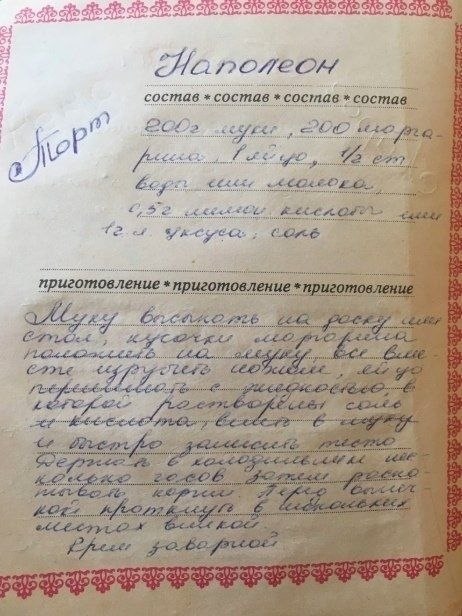 Наполеон
Торт
состав * состав * состав * состав
200г муки, 200 марга-
рина, 1 яйцо, 1/2 ст
воды или молока,
0,5г лимон кислоты или
1 г.л. уксуса, соль
приготовление * приготовление * приготовление
Муку высыпать на доску или
стол, кусочки маргарина
положить на муку, все вме-
сте изрубить ножом, яйцо
перемешать с жидкостью в
которой растворены соль
и кислота, влить в муку
и быстро замесить тесто
Держать в холодильнике нес-
колько часов. Затем раска-
тывать коржи. Перед выпеч-
кой проткнуть в нескольких
местах вилкой.
Крем заварной